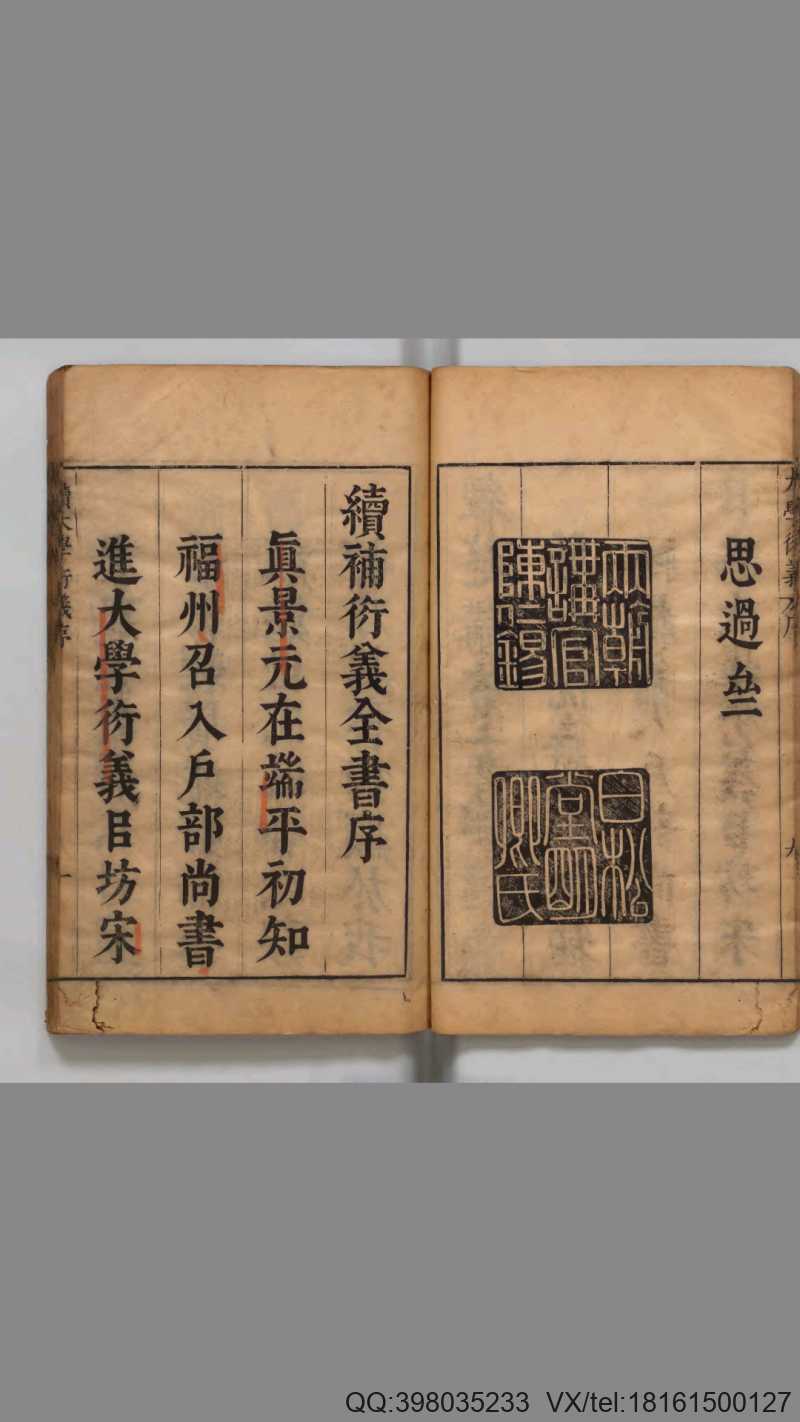 思過亝
兩朝講官陳仁錫
白松堂明卿氏
續補衍義全書序
眞景元在端平初知
福州召入戶部尚書
進大學衍義㠯坊宋
續大學衍義序
一
QQ:398035233 VX/tel:18161500127